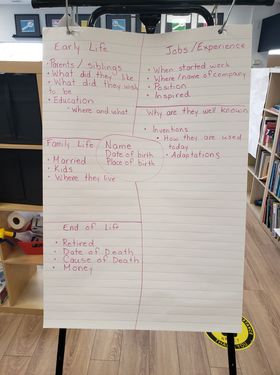 Early Life
• Parents/ Siblings
• What did they like
• What did they wish
to be
• Education
• where and what
Jobs/Experience
• When started work
• Where/name of company
• Position
• Inspired
Why are they well known
• Inventions
• How they are used
today
• Adaptations
Family Life
• Married
• Kids
• Where they live
Name
Date of birth
Place of birth
End of Life
• Retired
• Date of Death
• Cause of Death
• Money